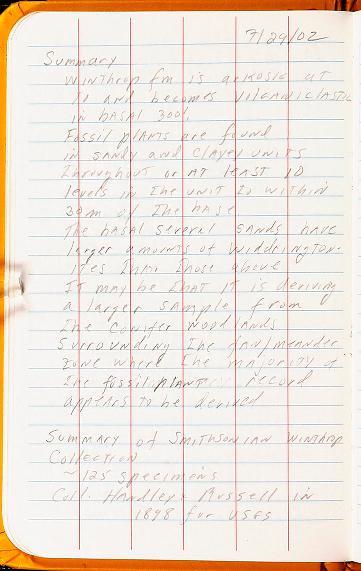 7/29/02
Summary
Winthrop fm is arkosic at
and becomes volcaniclastic
in basal 300'.
Fossil plants are found
in sandy and clayey units
throughout or at least 10
levels in the unit to within
30m of the base
The basal several sands have
larger amounts of Widdrington-
ites than those above
It may be that it is deriving
a larger sample from
the conifer woodlands
surrounding the fan/meander
zone where the majority of
the fossil plant record
appears to be derived
Summary of Smithsonian Winthrop
Collection
~125 specimens
Coll. Handley & Russell in
1898 for USGS